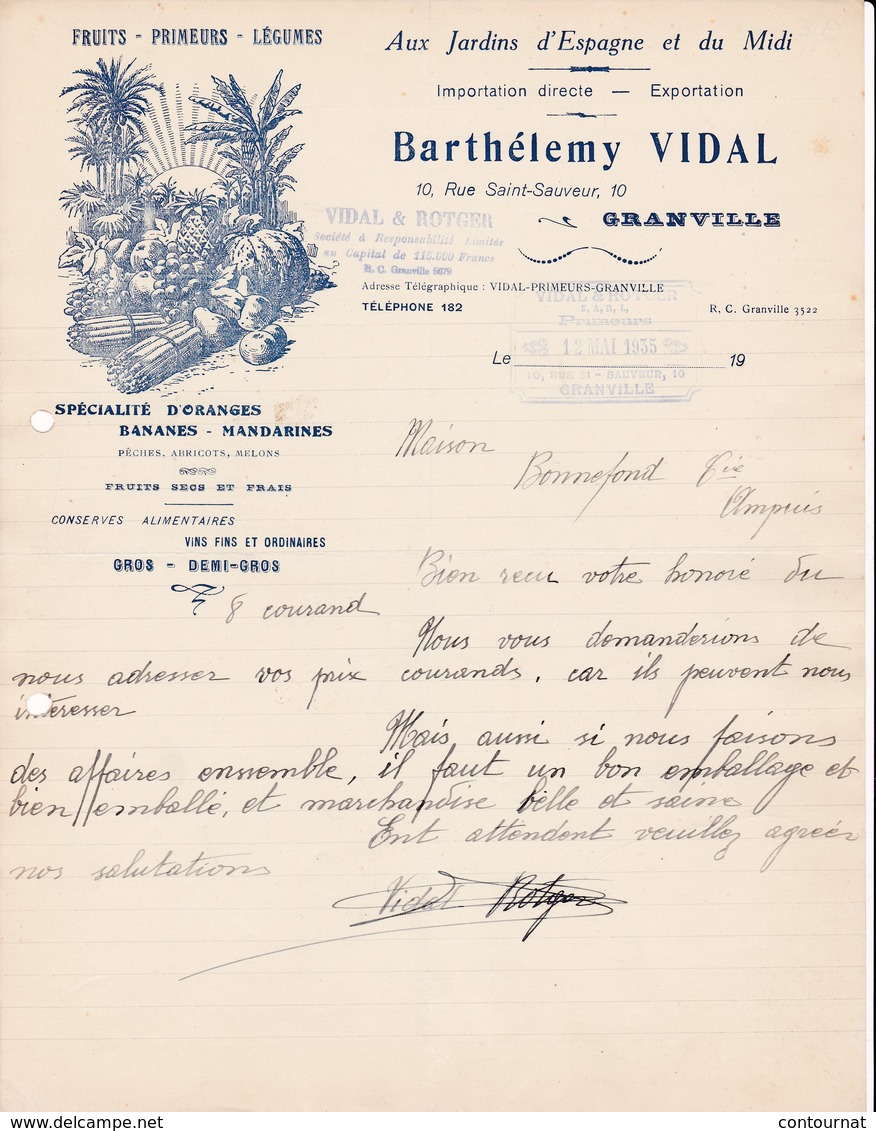 FRUITS - PRIMEURS - LÉGUMES
Aux Jardins d'Espagne et du Midi
Importation directe — Exportation
Barthélemy VIDAL
10, Rue Saint-Sauveur, 10
GRANVILLE
VIDAL & ROTGER
Société à Responsabilité Limitée
au Capital de 115.000 Francs
R. C. Granville 5679
Adresse Télégraphique : VIDAL-PRIMEURS-GRANVILLE
TÉLÉPHONE 182
R. C. Granville 3522
VIDAL & ROTGER
S. A. R. L.
Primeurs
12 MAI 1935
10, RUE St - SAUVEUR, 10
GRANVILLE
Le 19
SPÉCIALITÉ D'ORANGES
BANANES - MANDARINES
PÊCHES, ABRICOTS, MELONS
FRUITS SECS ET FRAIS
CONSERVES ALIMENTAIRES
VINS FINS ET ORDINAIRES
GROS - DEMI-GROS
Maison
Bonnefond
Ampuis
Bien recu votre honoré du
8 courand
Nous vous demanderions de
nous adresser vos prix courands, car ils peuvent nous
intéresser
Mais aussi si nous faisons
des affaires ensemble, il faut un bon emballage et
bien emballé, et marchandise belle et saine
Ent attendent veuillez agreér
nos salutations
Vidal Rotger
contournat